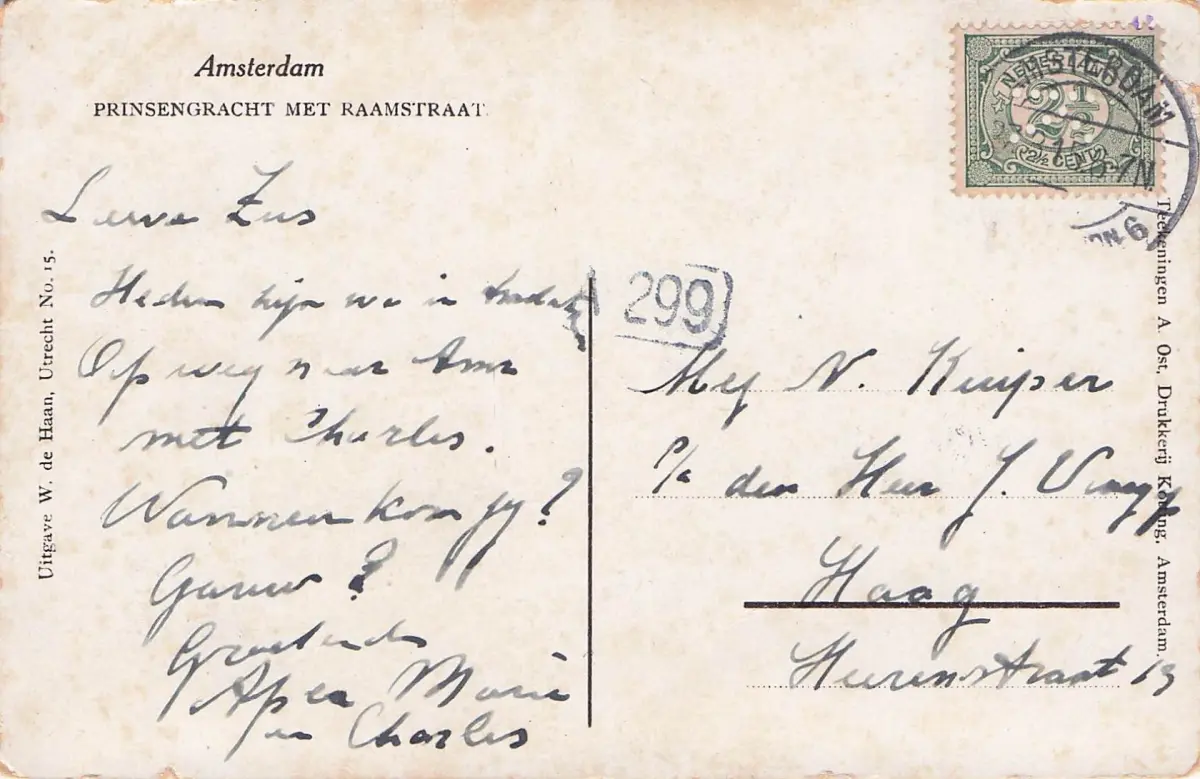 Amsterdam
PRINSENGRACHT MET RAAMSTRAAT
Lieve Zus
Heden zijn we in
Op weg naar
met Charles.
Wanneer kom jij?
Gauw?
Groetend
Marie
en Charles
Uitgave W. de Haan, Utrecht No. 15.
NEDERLAND
2½
2½ CENT
AMSTERDAM
7N
299
Mej N. Kuiper
p/a den Heer J.
Haag
Heerenstraat 19
Teekeningen A. Ost, Drukkerij Koning, Amsterdam.